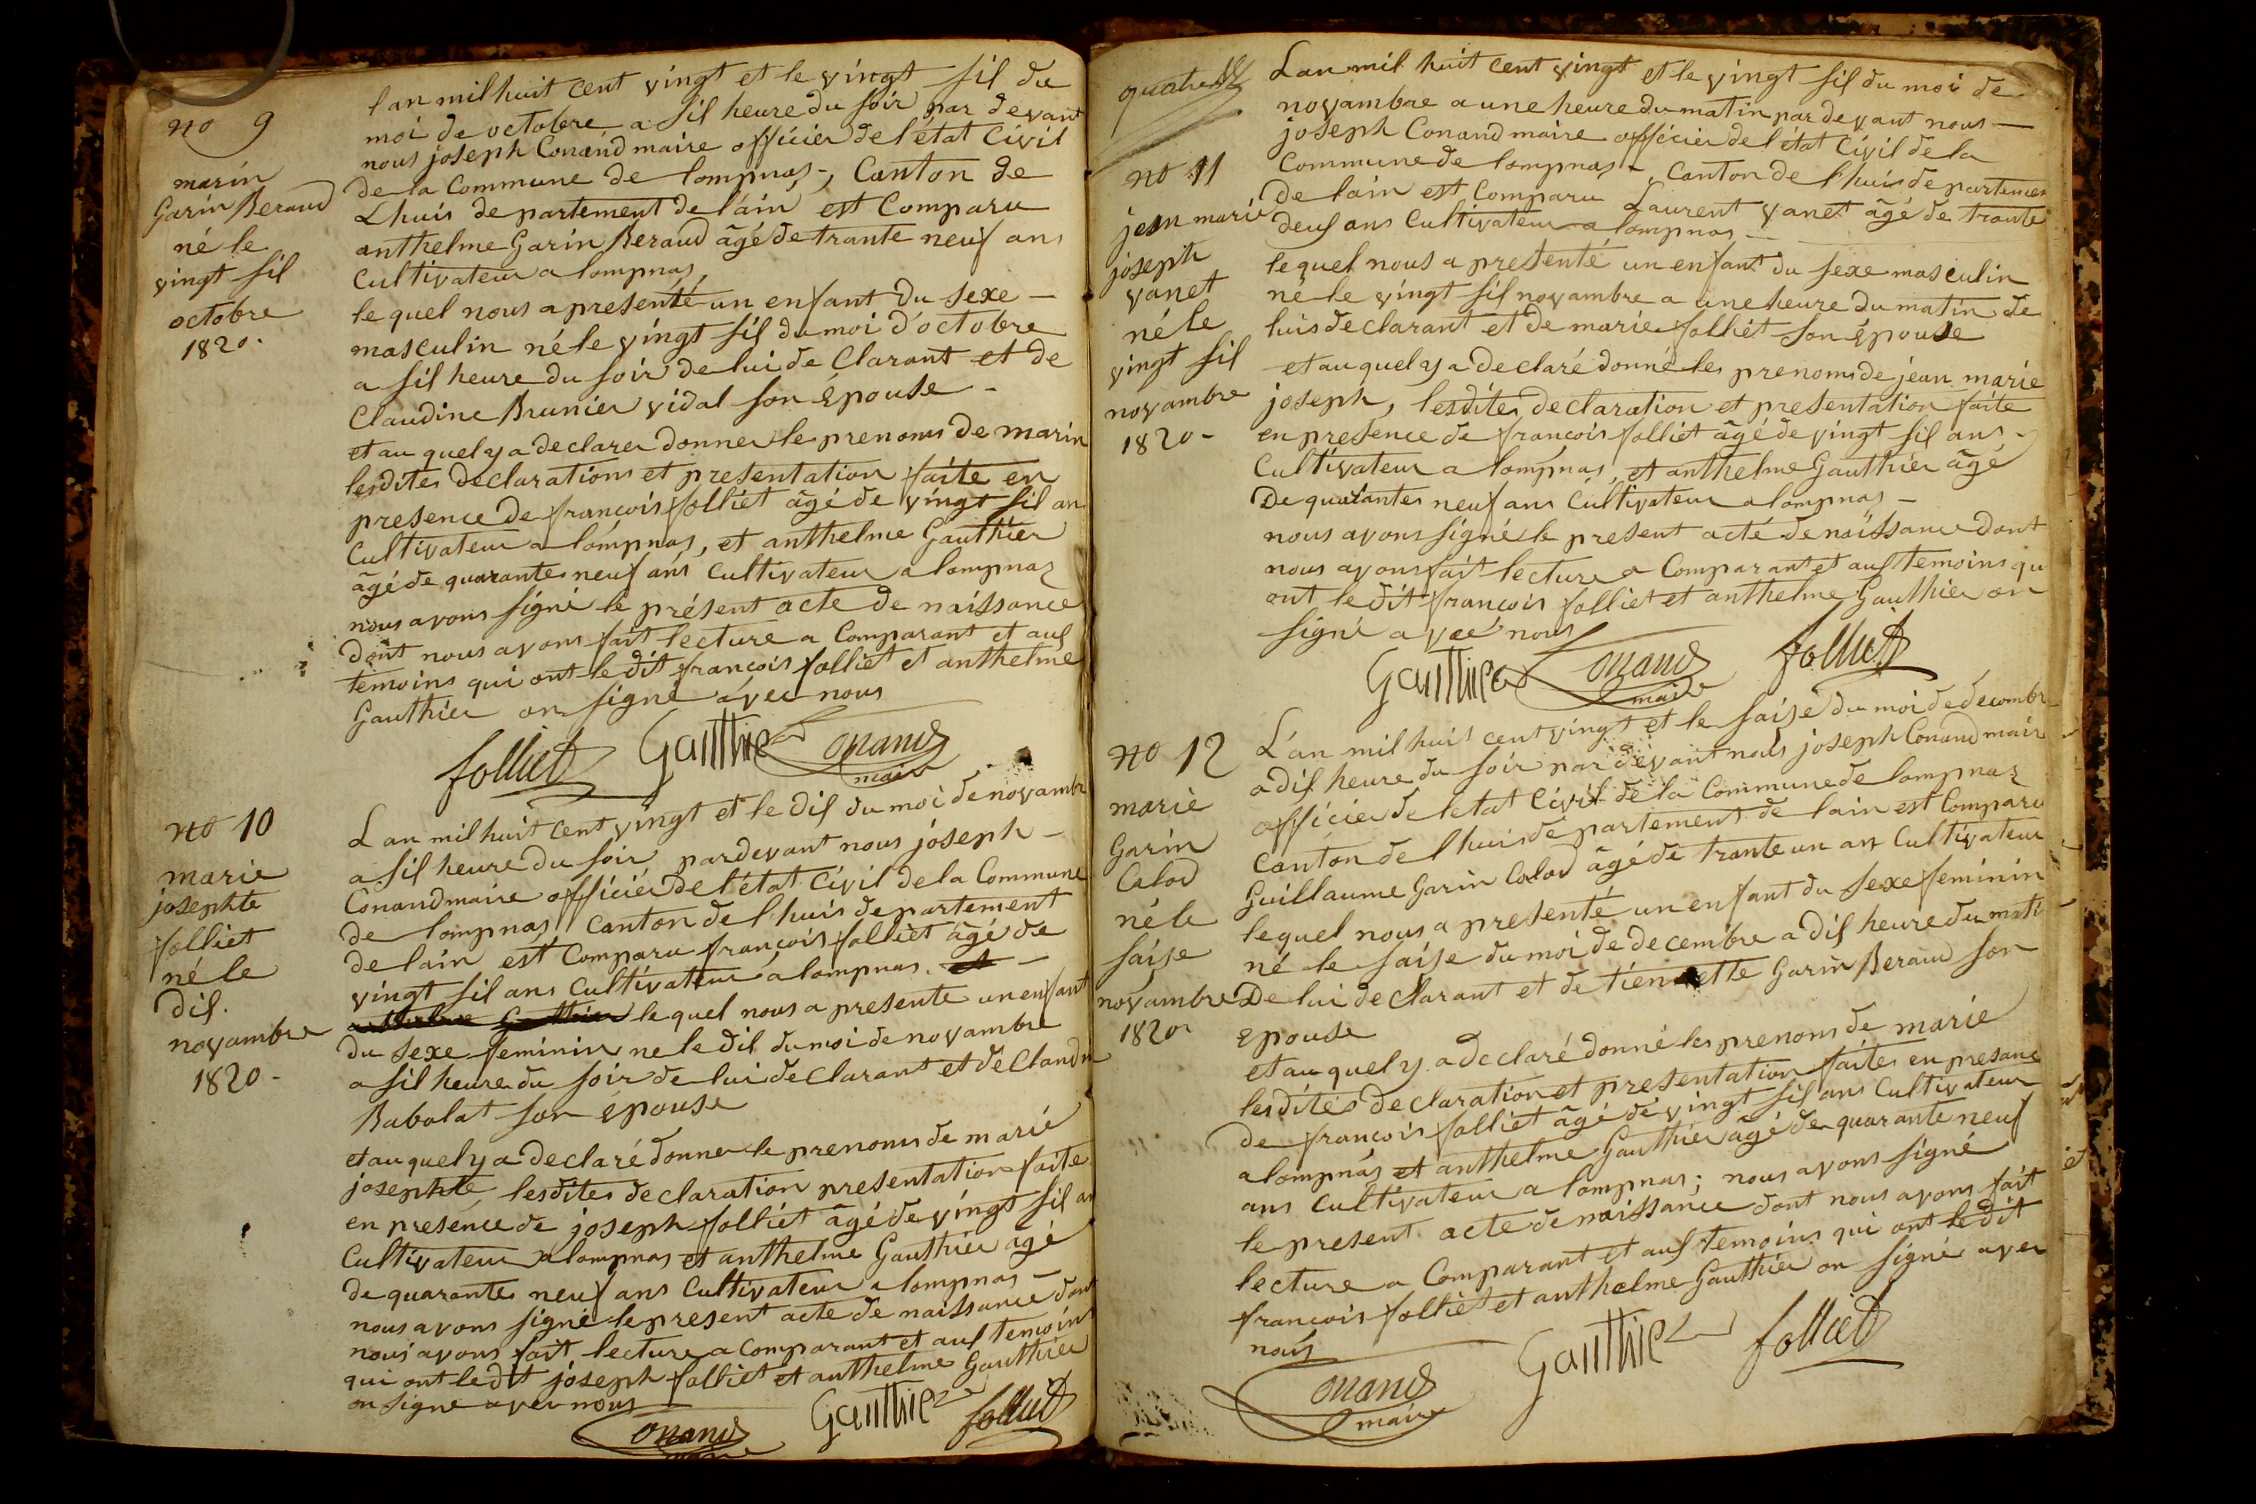 no 9
marin
Garin Beraud
né le
vingt sil
octobre
1820.
lan mil huit cent vingt et le vingt sil du
moi de octobre a sil heure du soir par devant
nous joseph Conand maire officier de l'état Civil
de la Commune de lompnas, Canton de
Lhuis departement de l'ain est Comparu
anthelme Garin Beraud âgé de trante neuf ans
Cultivateur a lompnas,
le quel nous a presenté un enfant du sexe
masculin né le vingt sil du moi d'octobre
a sil heure du soir de lui de Clarant et de
Claudine Brunier vidal son Epouse
et au quel y a declarer donner le prenoms de marin
lesdites declarations et presentation faite en
presence de francois folliet âgé de vingt sil an
Cultivateur a lompnas, et anthelme Gauthier
âgé de quarante neuf ans cultivateur a lompnas
nous avons signé le présent acte de naissance
dont nous avons fait lecture a Comparant et aus
temoins qui ont le dit francois folliet et anthelme
Gauthier on signé avec nous
folliet Gauthier Conand
maire
no 10
marie
josephte
folliet
né le
dis.
novambre
1820-
Lan mil huit cent vingt et le dis du moi de novambr
a sil heure du soir pardevant nous joseph
Conand maire officier de l'état Civil de la Commune
de lompnas Canton de lhuis departement
de lain est Comparu francois folliet âgé de
vingt sil ans cultivateur a lompnas. et
anthelme Gauthier le quel nous a presente un enfant
du sexe feminin ne le dis du moi de novambre
a sil heure du soir de lui declarant et de Claudin
Babolat son épouse
et au quel y a declaré donner le prenoms de marie
josephte, lesdites declaration presentation faite
en presence de joseph folliet âgé de vingt sil an
Cultivateur a lompnas et anthelme Gauthier agé
de quarante neuf ans Cultivateur a lompnas
nous avons signé le present acte de naissance dont
nous avons fait lecture a Comparant et aus temoins
qui ont le dit joseph folliet et anthelme Gauthier
on signe avec nous
Conand Gauthier folliet
quatre
no 11
jean marie
joseph
vanet
né le
vingt sil
novambre
1820-
Lan mil huit cent vingt et le vingt sil du moi de
novambre a une heure du matin par devant nous
joseph Conand maire officier de l'état Civil de la
Commune de lompnas, Canton de lhuis departemen
de lain est Comparu Laurent vanet âgé de trante
deus ans Cultivateur a lompnas
lequel nous a presenté un enfant du sexe masculin
né le vingt sil novambre a une heure du matin de
luis declarant et de marie folliet son Epouse
et au quel y a declaré donné les prenoms de jean marie
joseph, lesdites declaration et presentation faite
en presence de francois folliet âgé de vingt sil ans
Cultivateur a lompnas, et anthelme Gauthier âgé
De quarante neuf ans Cultivateur a lompnas
nous avons signé le present acte de naissance dont
nous avons fait lecture a Comparant et aus temoins qu
ont le dit francois folliet et anthelme Gauthier on
signé avec nous
Gauthier Conand folliet
maire
no 12
marie
Garin
Calod
né le
saise
novambre
1820
L'an mil huit cent vingt et le saise du moi de decembr
a dis heure du soir par devant nous joseph Conand mair
officier de letat Civil de la Commune de lompnas
Canton de lhuis departement de lain est Comparu
Guillaume Garin Calod âgé de trante un an Cultivateur
lequel nous a presenté un enfant du sexe feminin
né le saise du moi de decembre a dis heure du mati
De lui declarant et de tiennette Garin Beraud son
Epouse
et au quel y a declaré donné les prenoms de marie
lesdites declaration et presentation faites en presanc
de francois folliet âgé de vingt sil ans Cultivateur
a lompnas et anthelme Gauthier âgé de quarante neuf
ans Cultivateur a lompnas; nous avons signé
le present acte de naissance dont nous avons fait
lecture a Comparant et aus temoins qui ont le dit
francois folliet et anthelme Gauthier on signé avec
nous
Conand Gauthier folliet
maire